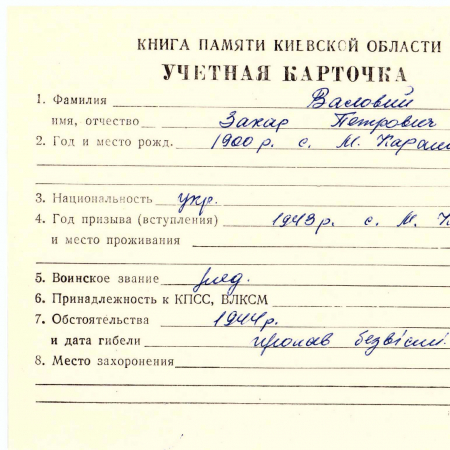 КНИГА ПАМЯТИ КИЕВСКОЙ ОБЛАСТИ
УЧЕТНАЯ КАРТОЧКА
1. Фамилия Васловий
имя, отчество Захар Петрович
2. Год и место рожд. 1900 р. с. М. Карат
3. Национальность укр.
4. Год призыва (вступления) 1943 р. с. М. К
и место проживания
5. Воинское звание ряд.
6. Принадлежность к КПСС, ВЛКСМ
7. Обстоятельства 1944 р.
и дата гибели пропав безвісти.
8. Место захоронения